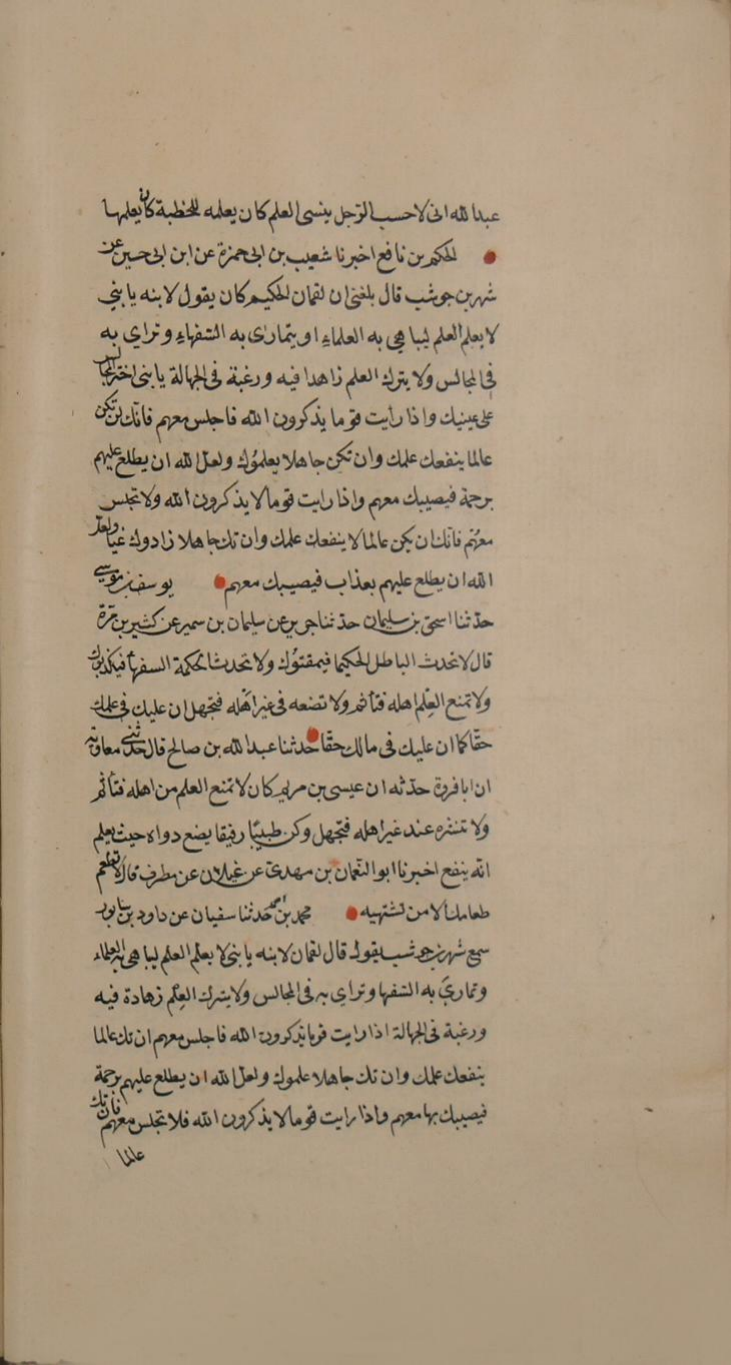 عبدالله انى لاحسب الرجل ينسى العلم كان يعلمه للخطية كان يعلمها
الحكم بن نافع اخبرنا شعيب بن ابى حمزة عن ابن ابى حسين عن
شهر بن حوشب قال بلغنى ان لقمان الحكيم كان يقول لابنه يا بنى
لا تعلم العلم ليباهى به العلماء او يتمارى به السفهاء وتراى به
فى المجالس ولا يترك العلم زاهدا فيه ورغبة فى الجهالة يا بنى اختر المجالس
على عينيك واذا رأيت قوما يذكرون الله فاجلس معهم فانك ان تكن
عالما ينفعك علمك وان تكن جاهلا يعلموك ولعل الله ان يطلع عليهم
برحمة فيصيبك معهم واذا رايت قوما لا يذكرون الله ولا تجلس
معهم فانك ان يكن عالما لا ينفعك علمك وان تك جاهلا زادوك غيا ولعل
الله ان يطلع عليهم بعذاب فيصيبك معهم يوسف بن موسى
حدثنا اسحق بن سليمان حدثنا جرير عن سليمان بن سمير عن كثير بن مرة
قال لا تحدث الباطل الحكيما فيمقتوك ولا تحدث الحكمة السفهاء فيكذبوك
ولا تمنع العلم اهله فتأثم ولا تضعه فى غير اهله فتجهل ان عليك فى علمك
حقا كما ان عليك فى مالك حقا حدثنا عبدالله بن صالح قال حدثنى معاوية
ان ابا فروة حدثه ان عيسى بن مريم كان لا تمنع العلم من اهله فتأثم
ولا تنشره عند غير اهله فتجهل وكن طبيبا رفيقا يضع دواه حيث يعلم
انه ينفع اخبرنا ابو النعمان بن مهدى عن غيلان عن مطرف قال لا تطعم
طعامك الا من تشتهيه محمد بن احمد حدثنا سفيان عن داود بن سابور
سمع شهر بن حوشب يقول قال لقمان لابنه يا بنى لا تعلم العلم ليباهى به العلماء
وتمارى به السفها وتراى به فى المجالس ولا يترك العلم زهادة فيه
ورغبة فى الجهالة اذا رايت قوما يذكرون الله فاجلس معهم ان تك عالما
ينفعك علمك وان تك جاهلا علموك ولعل الله ان يطلع عليهم برحمة
فيصيبك بها معهم واذا رايت قوما لا يذكرون الله فلا تجلس معهم فان تك
عالما